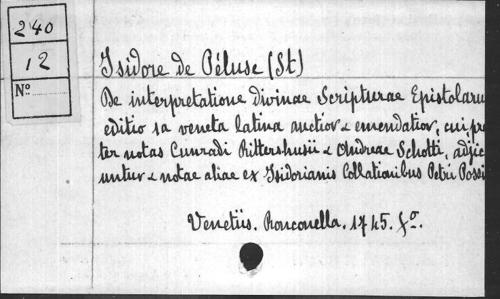 240
12
N°
Isidore de Péluse (St)
De interpretatione divinae Scripturae Epistolaru
editio 1a veneta latina auctior & emendatior, cui pre
ter notas Cunradi Rittershusii & Andreae Schotti, adjic
untur & notae aliae ex Isidorianis Collationibus Petri Possi
Venetiis. Ronconella. 1745. fo.